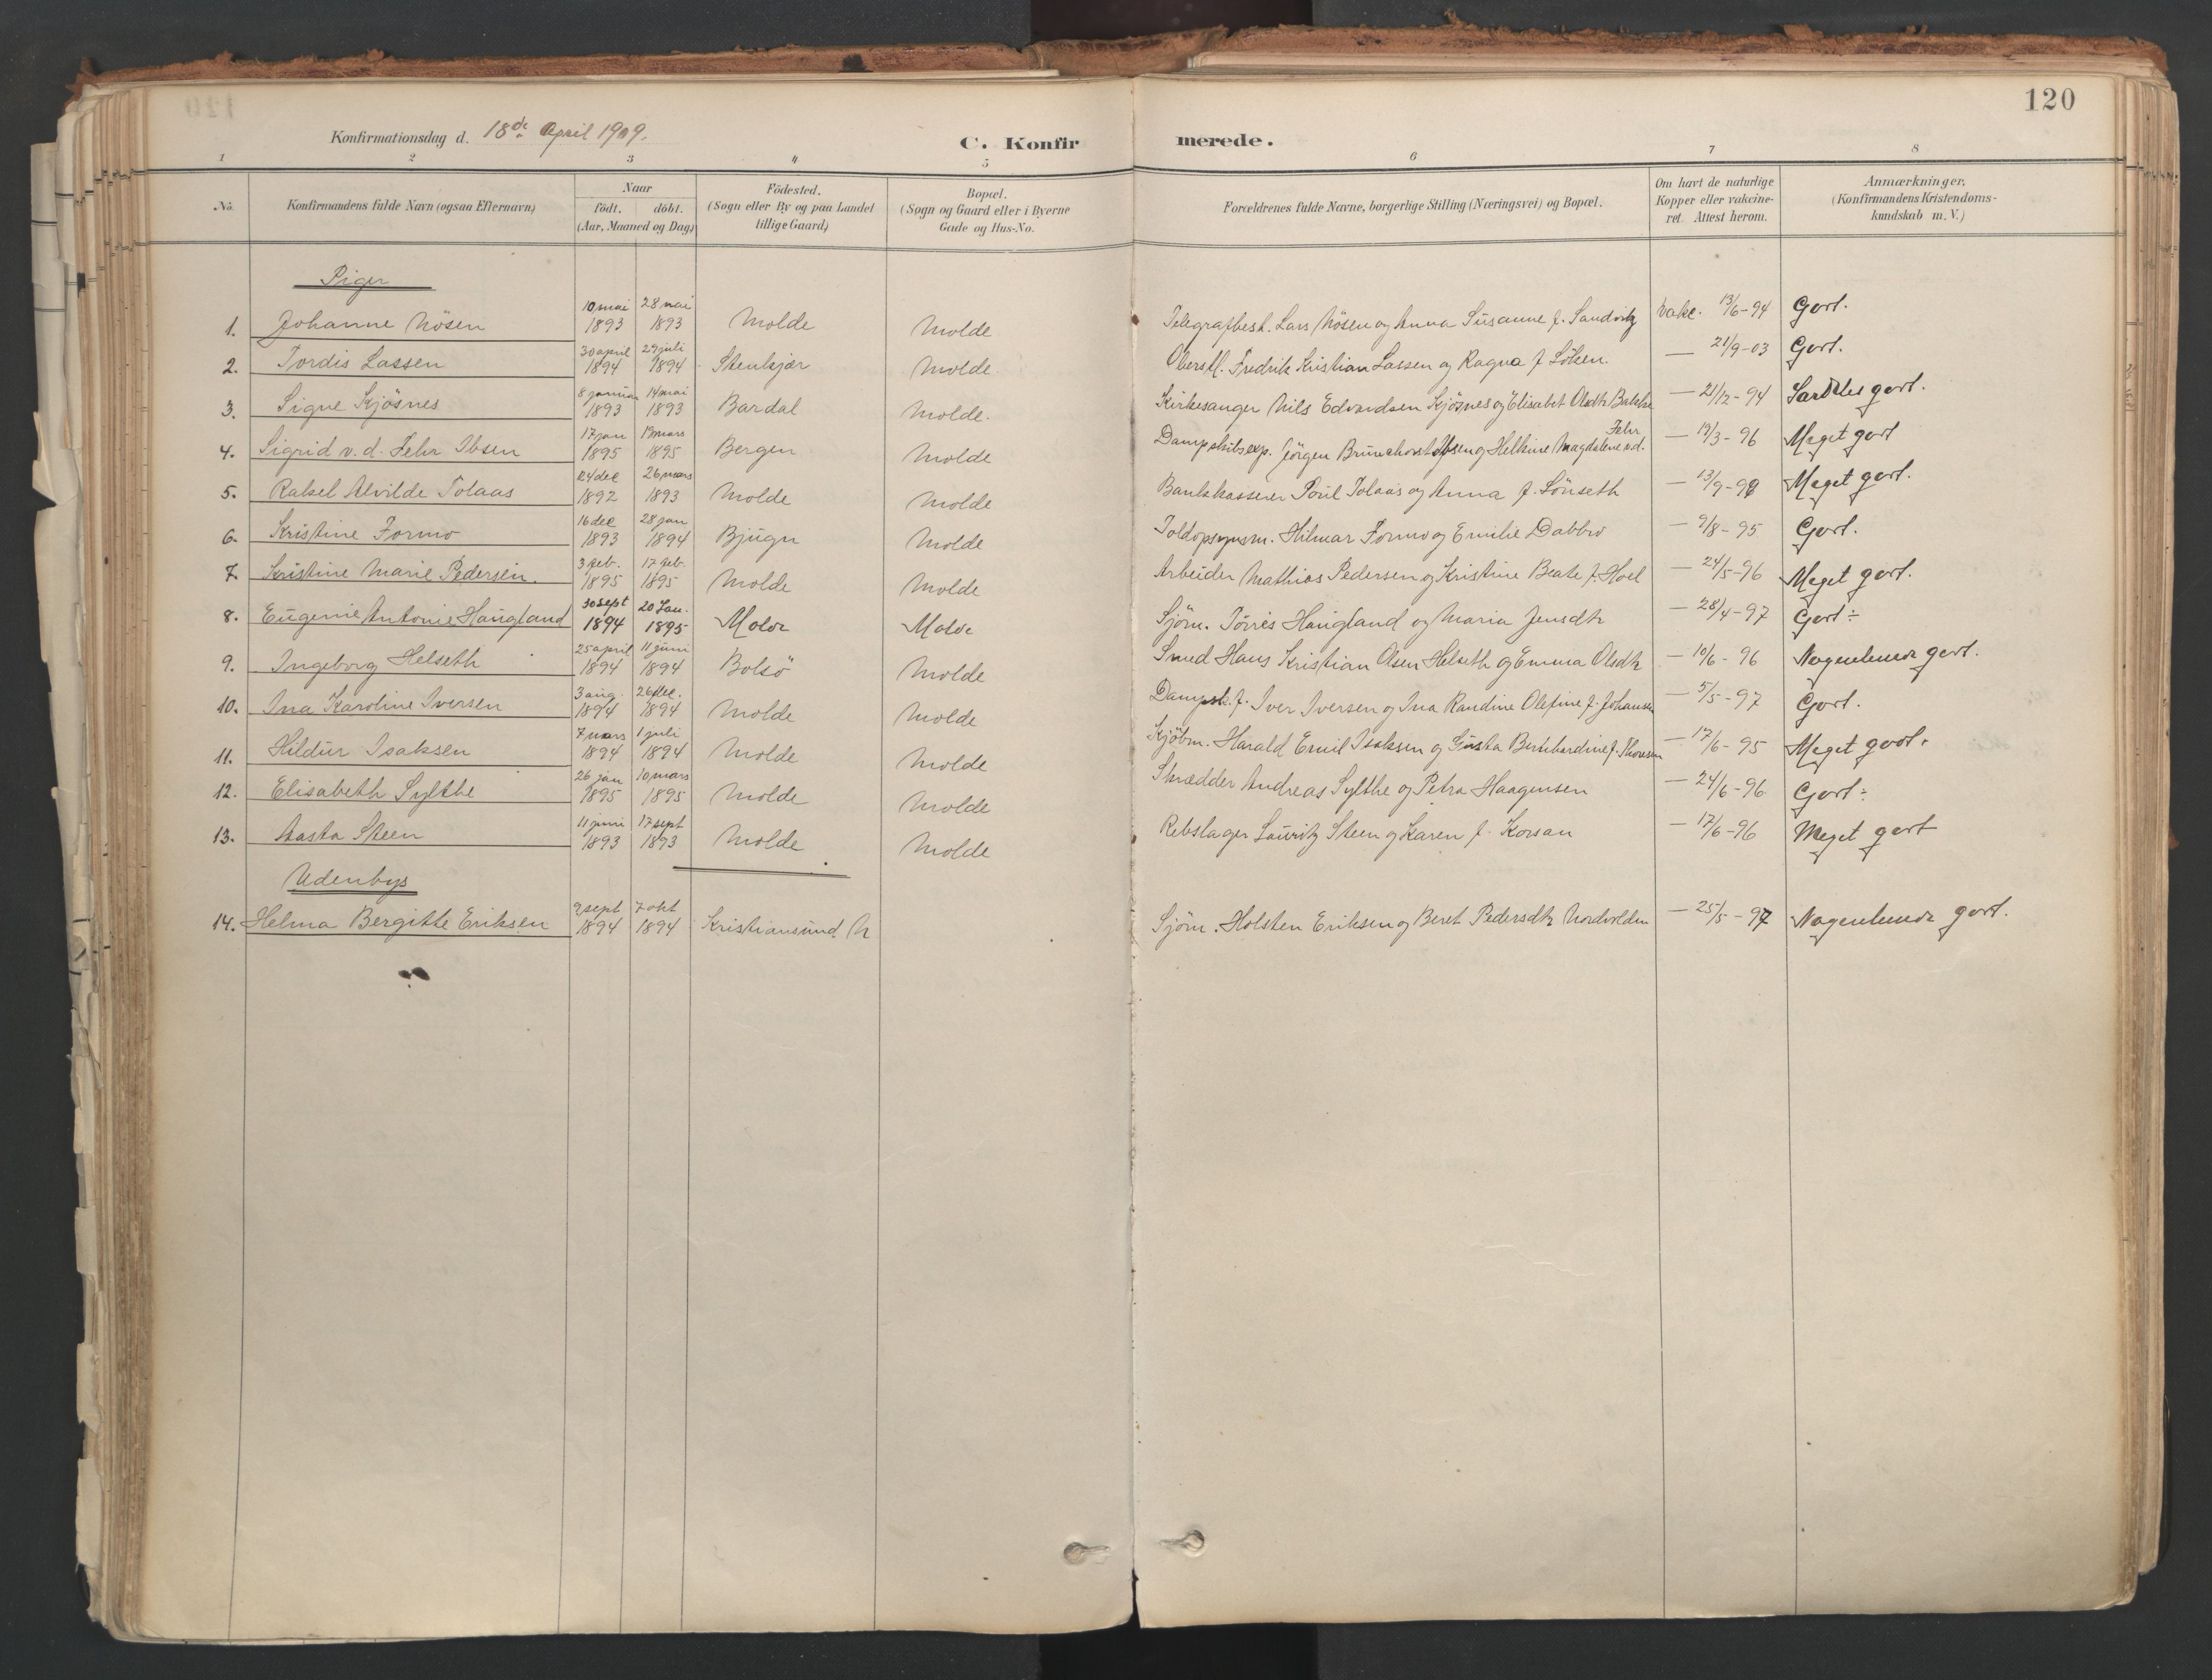 120
Konfirmationsdag d. 18de April 1909.
C. Konfirmerede.
1 2 3 4 5 6 7 8
No. Konfirmandens fulde Navn (ogsaa Efternavn) Naar födt. döbt. (Aar, Maaned og Dag) Födested. (Sogn eller By og paa Landet tillige Gaard) Bopæl. (Sogn og Gaard eller i Byerne Gade og Hus-No. Forældrenes fulde Navne, borgerlige Stilling (Næringsvei) og Bopæl. Om havt de naturlige Kopper eller vaccineret. Attest herom. Anmærkninger, (Konfirmandens Kristendomskundskab m. V.)
Piger
1. Johanne Nösen 10 mai 1893 28 mai 1893 Molde Molde Telegrafbest. Lars Nösen og Anna Susanne f. Sandvig Vakc. 13/6-94 Godt.
2. Tordis Lassen 30 april 1894 29 juli 1894 Stenkjær Molde Oberstl. Fredrik Kristian Lassen og Ragna f. — 21/9-03 Godt.
3. Signe Kjösnes 8 januar 1893 14 mai 1893 Bardal Molde. Kirkesanger Nils Edvardsen Kjösnes og Elisabet Olsdtr — 21/12-94 Særdeles godt.
4. Sigrid v. d. Fehr Ibsen 17 jan 1895 19 mars 1895 Bergen Molde Dampskibsexp. Jörgen Brunchorst Ibsen og Helkine Magdalene v.d. Fehr — 19/3-96 Meget godt
5. Rakel Alvilde Tolaas 24 dec 1892 26 mars 1893 Molde Molde Bankkasserer Poul Tolaas og Anna f. Lönseth — 13/9-98 Meget godt.
6. Kristine Formo 16 dec 1893 28 jan 1894 Bjugn Molde Toldopsynsm. Hilmar Formo og Emilie Dabbro — 9/8-95 Godt.
7. Kristine Marie Pedersen. 3 feb. 1895 17 feb. 1895 Molde Molde Arbeider Mathias Pedersen og Kristine Beate f. Hoel — 24/5-96 Meget godt.
8. Eugenie Antonie Haugland 30 sept 1894 20 Jan. 1895 Molde Molde Sjöm. Törres Haugland og Maria Jensdtr — 28/4-97 Godt ÷
9. Ingeborg Helseth 25 april 1894 11 juni 1894 Bolsö Molde Smed Hans Kristian Olsen Helseth og Emma Olsdtr — 10/6-96 Nogenlunde godt.
10. Ina Karoline Iversen 3 aug. 1894 26 dec. 1894 Molde Molde Dampsk.f. Iver Iversen og Ina Randine Olefine f. Johansen — 5/5-97 Godt.
11. Hildur Isaksen 7 mars 1894 1 juli 1894 Molde Molde Kjöbm. Harald Emil Isaksen og Gusta Bernhardine f. Thoresen — 17/6-95 Meget godt.
12. Elisabeth Sylthe 26 jan 1895 10 mars 1895 Molde Molde Skrædder Andreas Sylthe og Petra Haagensen — 24/6-96 Godt ÷
13. Aasta Steen 11 juni 1893 17 sept 1893 Molde Molde Rebslager Lauritz Steen og Karen f. Korsan — 17/6-96 Meget godt
Udenbys
14. Helma Bergitte Eriksen 9 sept 1894 7 okt 1894 Kristiansund N Sjöm. Holsten Eriksen og Beret Pedersdtr Nordvolden — 25/5-97 Nogenlunde godt.